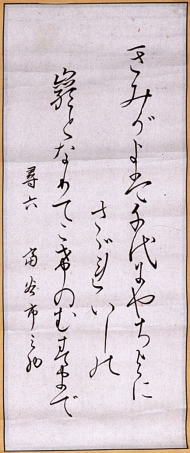 きみがよは千代にやちよに
さゞれいしの
巌となりてこけのむすまで
尋六